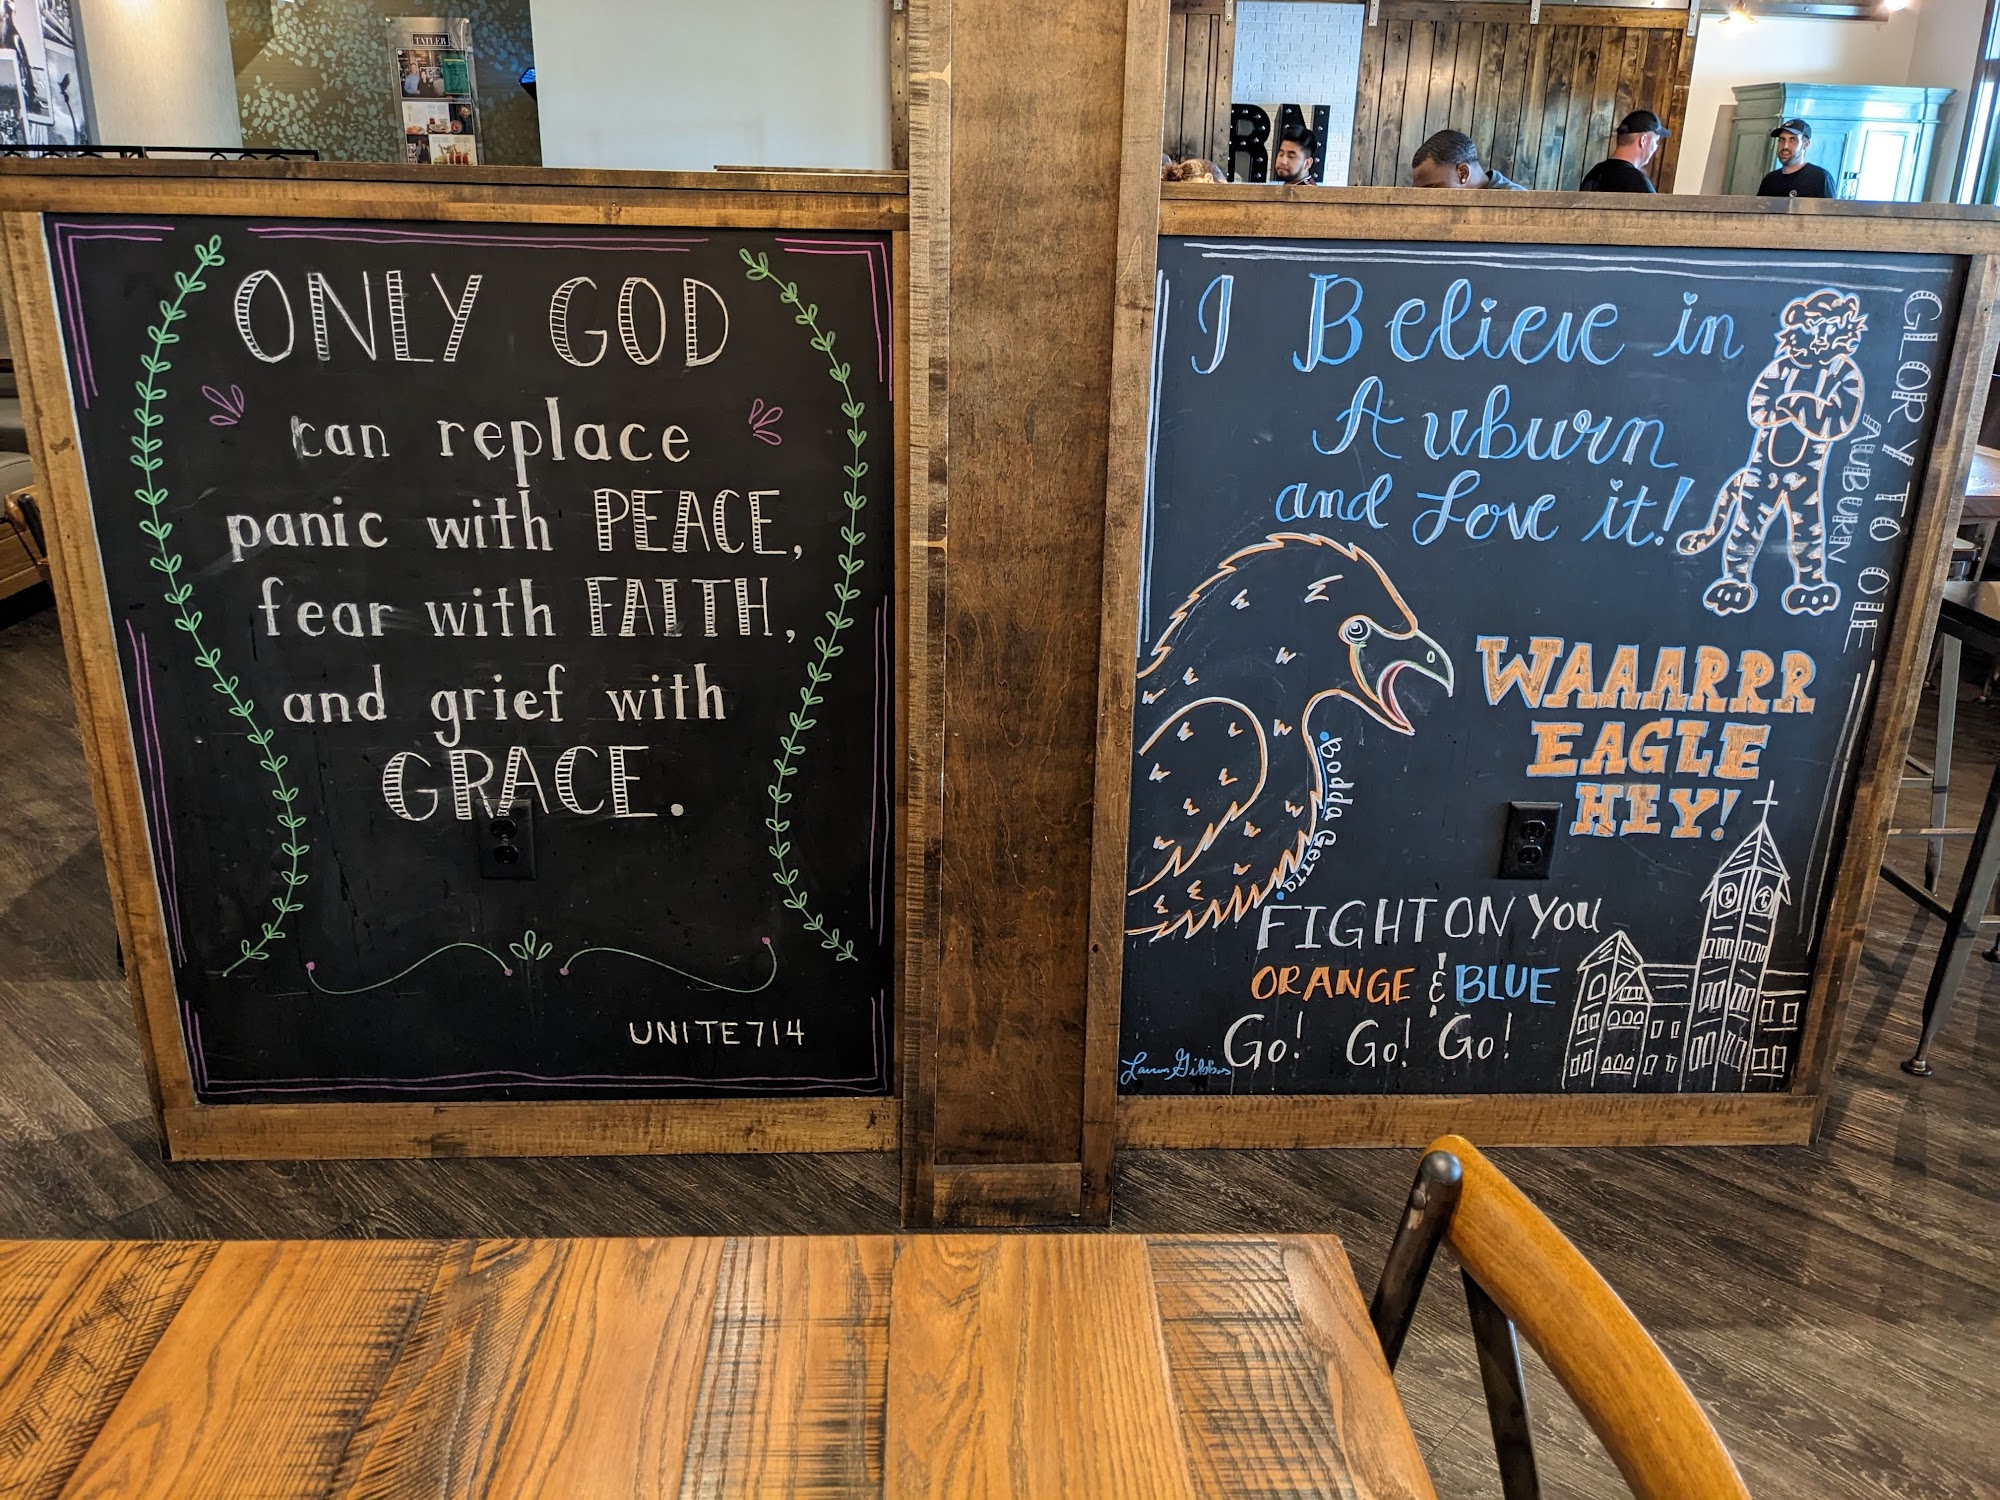 TATLER
RN
ONLY GOD
can replace
panic with PEACE,
fear with FAITH,
and grief with
GRACE.
UNITE714
I Believe in
Auburn
and Love it!
GLORY TO OLE
AUBURN
WAAARRR
EAGLE
HEY!
Bodda Getta
FIGHT ON YOU
ORANGE & BLUE
Go! Go! Go!